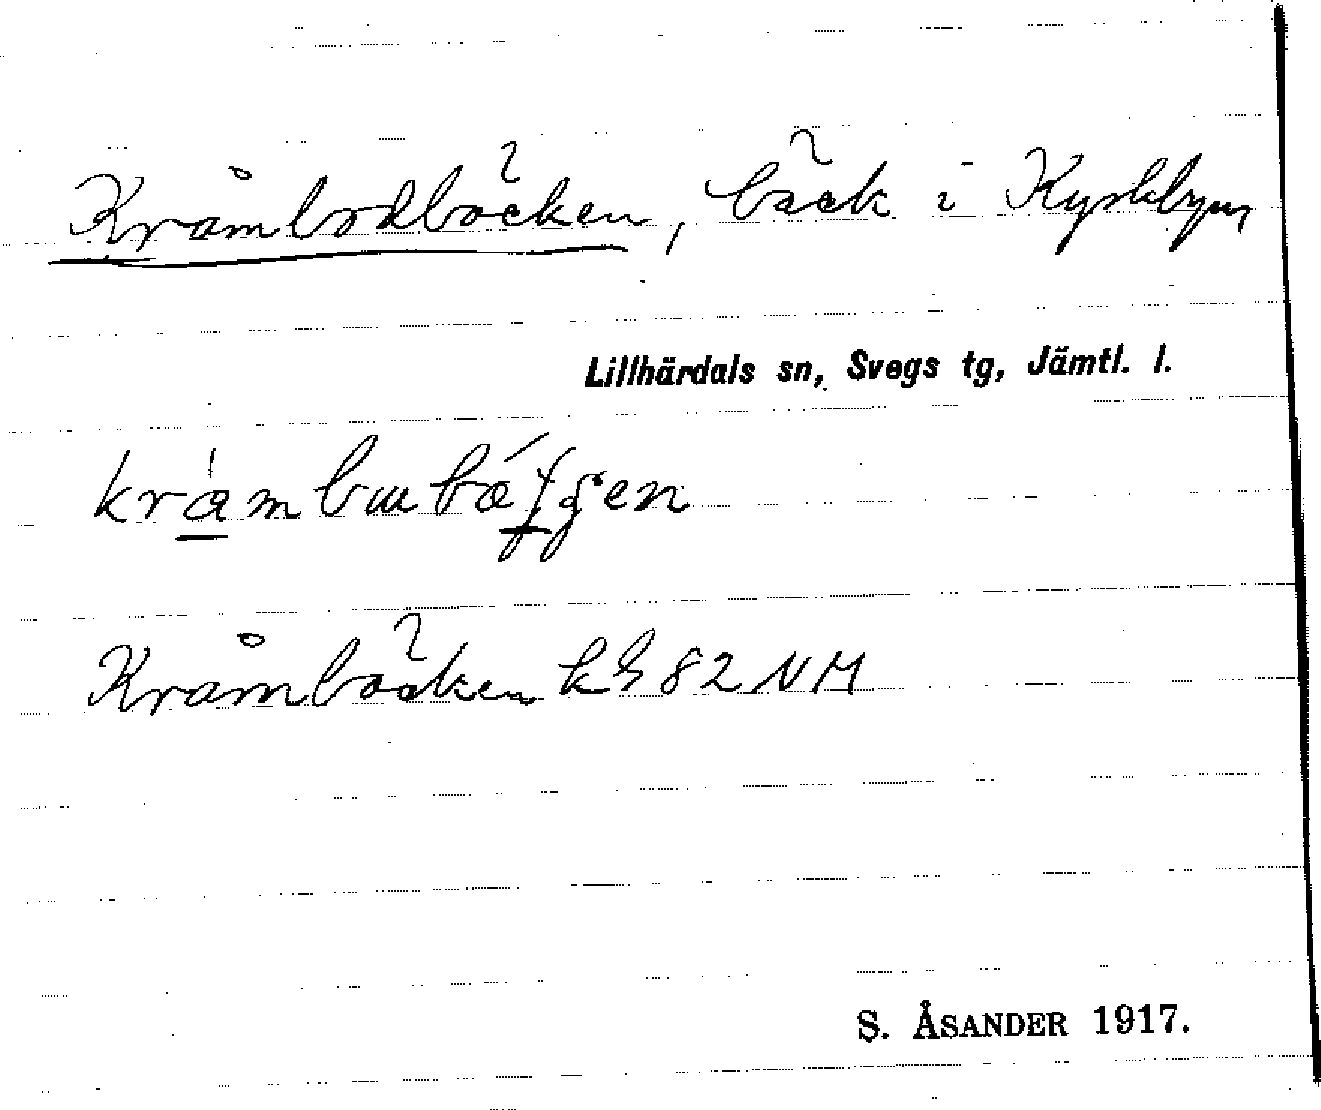 Kråmbodbäcken, bäck i Kyrkbyn
Lillhärdals sn, Svegs tg, Jämtl. l.
Kråmbäcken kG 82 NM
S. ÅSANDER 1917.